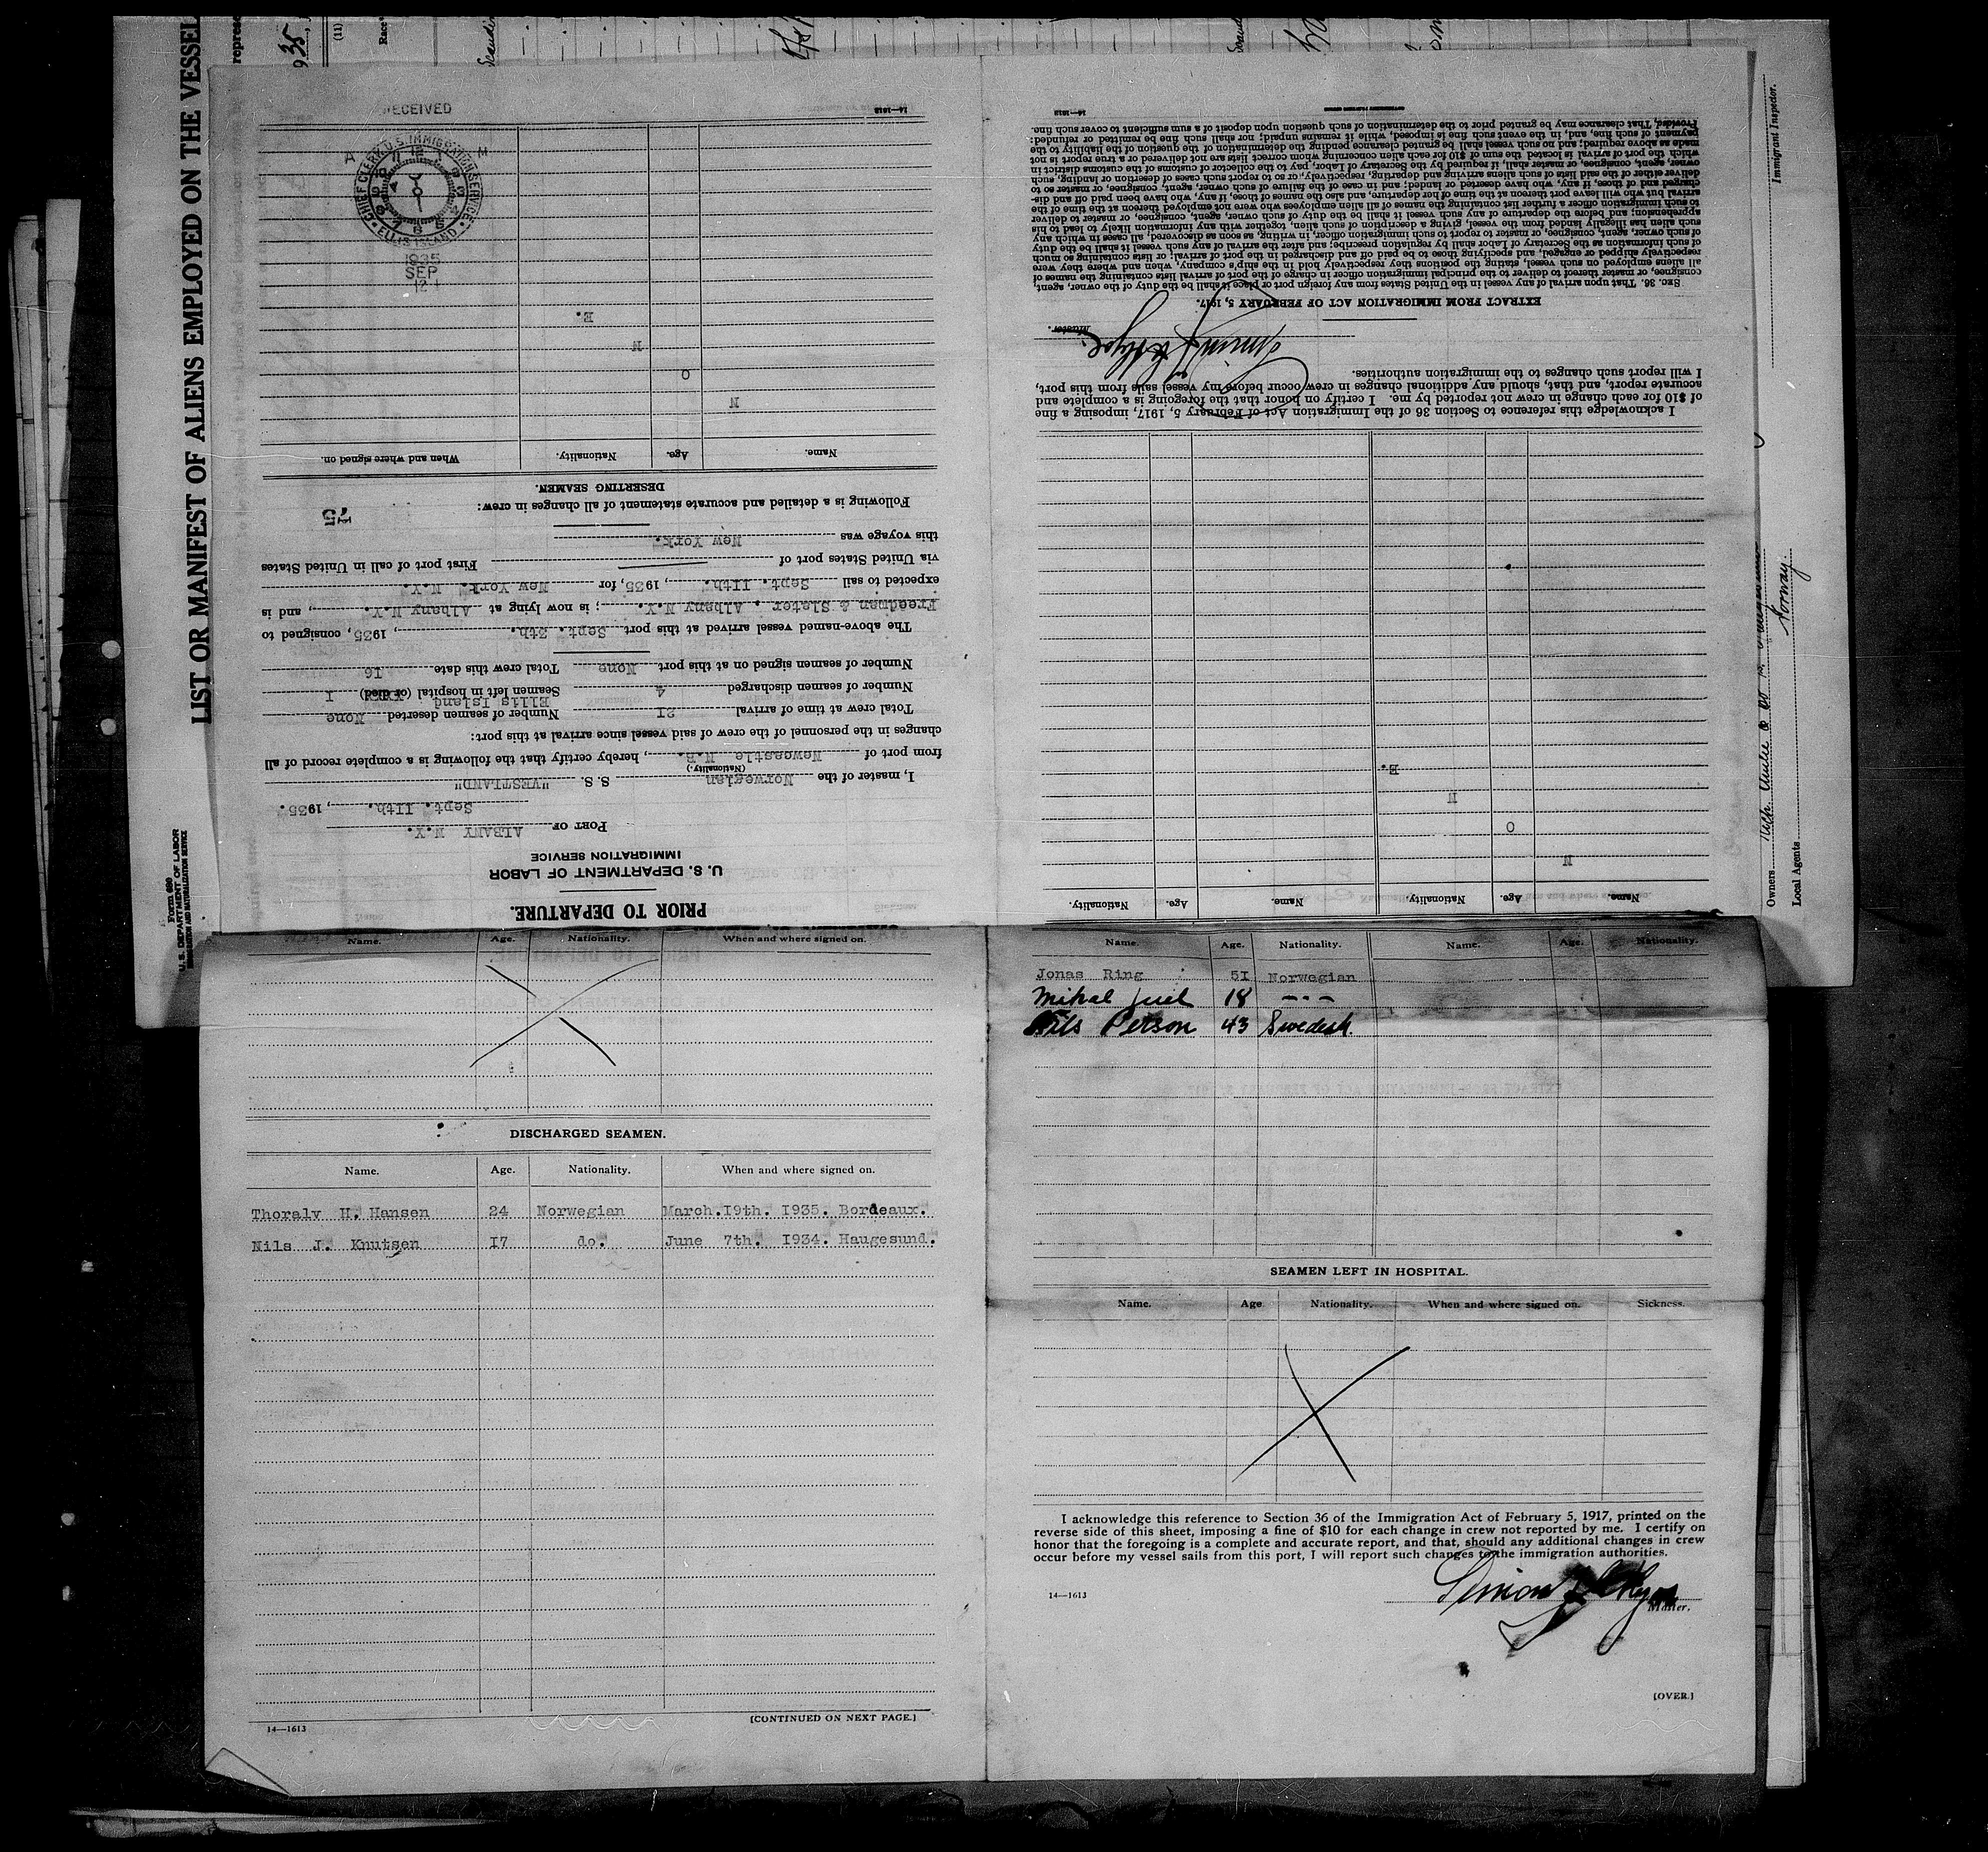 LIST OR MANIFEST OF ALIENS EMPLOYED ON THE VESSEL
Form 680
U. S. DEPARTMENT OF LABOR
IMMIGRATION AND NATURALIZATION SERVICE
(11)
Immigrant Inspector.
Owners
Local Agents
Norway
PRIOR TO DEPARTURE.
U. S. DEPARTMENT OF LABOR
IMMIGRATION SERVICE
PORT OF ALBANY N.Y.
Sept. 11th. , 1935.
I, master of the Norwegian S. S. "VESTLAND"
(Nationality.)
from port of Newcastle N.B. , hereby certify that the following is a complete record of all
changes in the personnel of the crew of said vessel since arrival at this port:
Total crew at time of arrival 21 Number of seamen deserted None
Ellis Island
Number of seamen discharged 4 Seamen left in hospital (or died) 1
Number of seamen signed on at this port None Total crew this date 16
The above-named vessel arrived at this port Sept. 3th. , 1935, consigned to
Freedman & Slater. Albany N.Y. ; is now lying at Albany N.Y. , and is
expected to sail Sept. 11th. , 1935, for New York. N.Y.
via United States port of First port of call in United States
this voyage was New York.
Following is a detailed and accurate statement of all changes in crew:
75
DESERTING SEAMEN.
Name. Age. Nationality. When and where signed on.
N
O
N
E.
14—1613
RECEIVED
CHIEF CLERK, U.S. IMMIGRATION SERVICE
ELLIS ISLAND
A M
1935
SEP
12
Name. Age. Nationality. Name. Age. Nationality.
N
O
N
E.
I acknowledge this reference to Section 36 of the Immigration Act of February 5, 1917, imposing a fine
of $10 for each change in crew not reported by me. I certify on honor that the foregoing is a complete and
accurate report, and that, should any additional changes in crew occur before my vessel sails from this port,
I will report such changes to the immigration authorities.
Master.
EXTRACT FROM IMMIGRATION ACT OF FEBRUARY 5, 1917.
SEC. 36. That upon arrival of any vessel in the United States from any foreign port or place it shall be the duty of the owner, agent,
consignee, or master thereof to deliver to the principal immigration officer in charge of the port of arrival lists containing the names of
all aliens employed on such vessel, stating the positions they respectively hold in the ship's company, when and where they were
respectively shipped or engaged, and specifying those to be paid off and discharged in the port of arrival; or lists containing so much
of such information as the Secretary of Labor shall by regulation prescribe; and after the arrival of any such vessel it shall be the duty
of such owner, agent, consignee, or master to report to such immigration officer, in writing, as soon as discovered, all cases in which any
such alien has illegally landed from the vessel, giving a description of such alien, together with any information likely to lead to his
apprehension; and before the departure of any such vessel it shall be the duty of such owner, agent, consignee, or master to deliver
to such immigration officer a further list containing the names of all alien employees who were not employed thereon at the time of the
arrival but who will leave port thereon at the time of her departure, and also the names of those, if any, who have been paid off and dis-
charged and of those, if any, who have deserted or landed; and in case of the failure of such owner, agent, consignee, or master so to
deliver either of the said lists of such aliens arriving and departing, respectively, or so to report such cases of desertion or landing, such
owner, agent, consignee, or master shall, if required by the Secretary of Labor, pay to the collector of customs of the customs district in
which the port of arrival is located the sum of $10 for each alien concerning whom correct lists are not delivered or a true report is not
made as above required; and no such vessel shall be granted clearance pending the determination of the question of the liability to the
payment of such fine, and, in the event such fine is imposed, while it remains unpaid; nor shall such fine be remitted or refunded:
Provided, That clearance may be granted prior to the determination of such question upon deposit of a sum sufficient to cover such fine.
14—1613
Name. Age. Nationality. When and where signed on.
DISCHARGED SEAMEN.
Name. Age. Nationality. When and where signed on.
Thoralv H. Hansen 24 Norwegian March.19th. 1935. Bordeaux.
Nils J. Knutsen 17 do. June 7th. 1934. Haugesund.
14—1613
[CONTINUED ON NEXT PAGE.]
Name. Age. Nationality. Name. Age. Nationality.
Jonas Ring 51 Norwegian
Mikal Juel 18 -"-
Nils Person 43 Swedish.
SEAMEN LEFT IN HOSPITAL.
Name. Age Nationality. When and where signed on. Sickness.
I acknowledge this reference to Section 36 of the Immigration Act of February 5, 1917, printed on the
reverse side of this sheet, imposing a fine of $10 for each change in crew not reported by me. I certify on
honor that the foregoing is a complete and accurate report, and that, should any additional changes in crew
occur before my vessel sails from this port, I will report such changes to the immigration authorities.
14—1613
Master.
[OVER.]